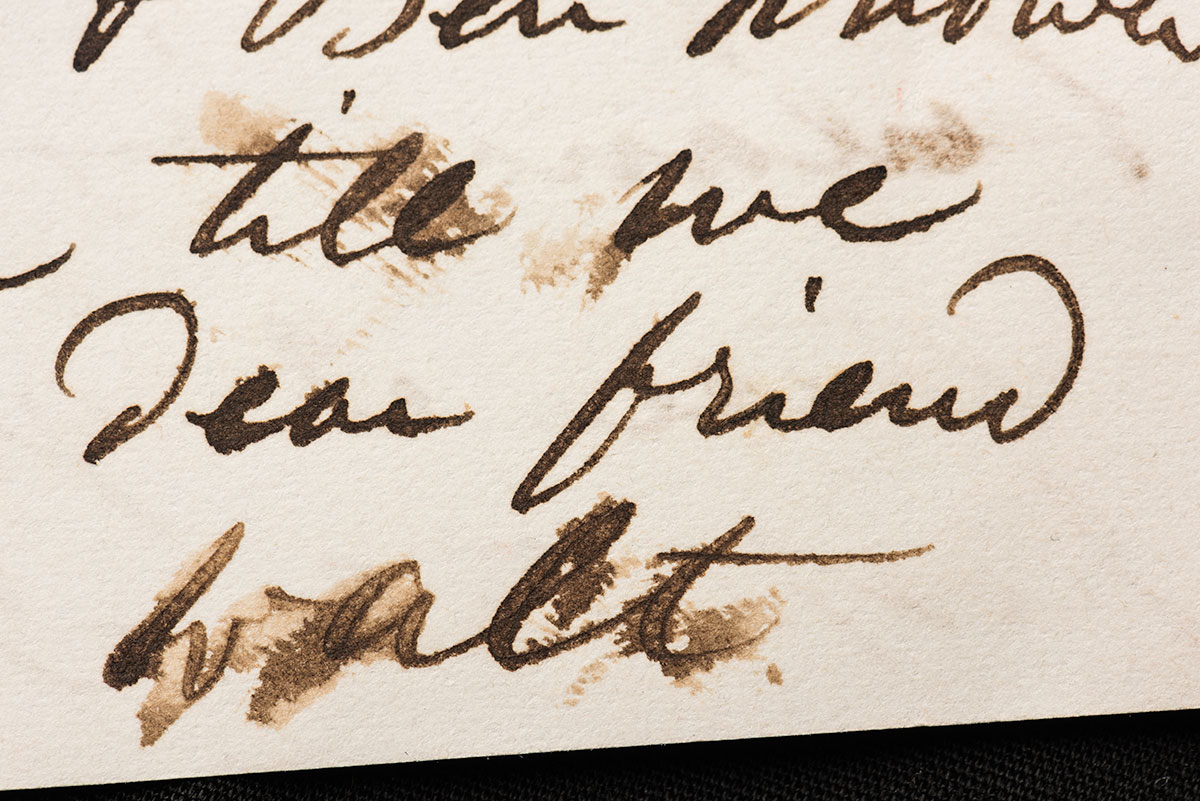 Ben
till we
dear friend
Walt